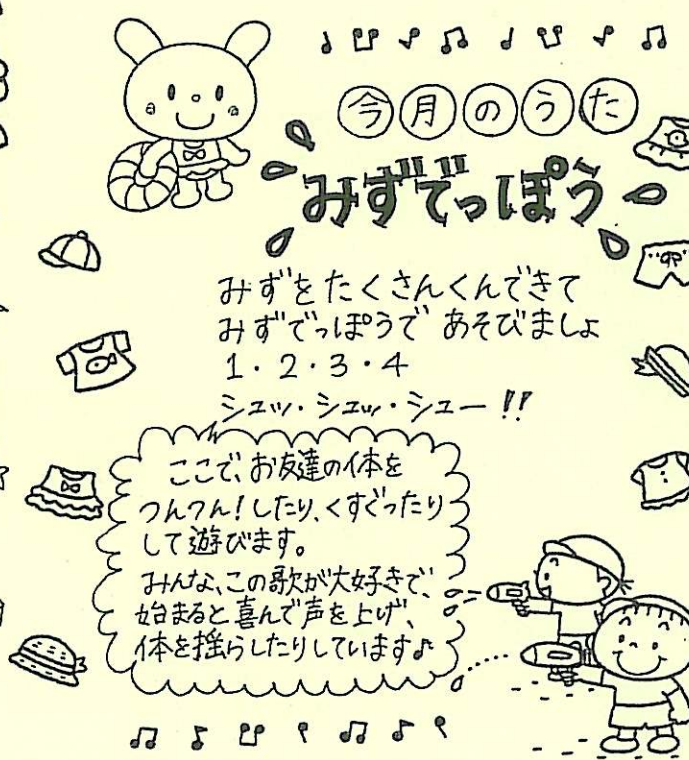 今月のうた
みずでっぽう
みずをたくさんくんできて
みずでっぽうで あそびましょ
1・2・3・4
シュッ・シュッ・シュー!!
ここで、お友達の体を
つんつん!したり、くすぐったり
して遊びます。
みんな、この歌が大好きで、
始まると喜んで声を上げ、
体を揺らしたりしています♪